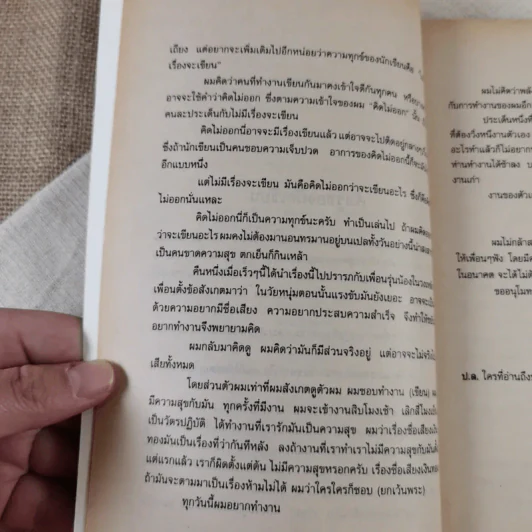 เถียง แต่อยากจะเพิ่มเติมไปอีกหน่อยว่าความทุกข์ของนักเขียนคือ
เรื่องจะเขียน"
ผมคิดว่าคนที่ทำงานเขียนกันมาคงเข้าใจดีกันทุกคน
อาจจะใช้คำว่าคิดไม่ออก ซึ่งตามความเข้าใจของผม "คิดไม่ออก"
คนละประเด็นกับไม่มีเรื่องจะเขียน
คิดไม่ออกนี่อาจจะมีเรื่องเขียนแล้ว แต่อาจจะไปติดอยู่กลาง
ซึ่งถ้านักเขียนเป็นคนชอบความเจ็บปวด อาการของคิดไม่ออกนี้ก็จะ
อีกแบบหนึ่ง
แต่ไม่มีเรื่องจะเขียน มันคือคิดไม่ออกว่าจะเขียนอะไร
ไม่ออกนั่นแหละ
คิดไม่ออกนี่ก็เป็นความทุกข์นะครับ ทำเป็นเล่นไป
ว่าจะเขียนอะไร ผมคงไม่ต้องมานอนทรมานอยู่บนเปลทั้งวันอย่างนี้
เป็นคนขาดความสุข ตกเย็นก็กินเหล้า
คืนหนึ่งเมื่อเร็วๆนี้ได้นำเรื่องนี้ไปปรารภกับเพื่อนรุ่นน้อง
เพื่อนตั้งข้อสังเกตมาว่า ในวัยหนุ่มตอนนั้นแรงขับมันยังเยอะ
ด้วยความอยากมีชื่อเสียง ความอยากประสบความสำเร็จ
อยากทำงานจึงพยายามคิด
ผมกลับมาคิดดู ผมคิดว่ามันก็มีส่วนจริงอยู่ แต่อาจจะไม่
เสียทั้งหมด
โดยส่วนตัวผมเท่าที่ผมสังเกตดูตัวผม ผมชอบทำงาน (เขียน)
มีความสุขกับมัน ทุกครั้งที่มีงาน ผมจะเข้างานสิบโมงเช้า
เป็นวัตรปฏิบัติ ได้ทำงานที่เรารักมันเป็นความสุข ผมว่าเรื่องชื่อเสียง
ทองมันเป็นเรื่องที่ว่ากันทีหลัง ลงถ้างานที่เราทำเราไม่มีความสุขกับมัน
แต่แรกแล้ว เราก็ผิดตั้งแต่ต้น ไม่มีความสุขหรอกครับ เรื่องชื่อเสียง
ถ้ามันจะตามมาเป็นเรื่องห้ามไม่ได้ ผมว่าใครใครก็ชอบ (ยกเว้นพระ)
ทุกวันนี้ผมอยากทำงาน
ผมไม่คิดว่า
กับการทำงานของผมอีก
ประเด็นหนึ่งที่
ที่ต้องวิ่งหนีงานตัวเอง
อะไรทำแล้วก็ไม่อยาก
ท่านทำงานได้ช้าลง
งานเก่า
งานของตัว
ผมไม่กล้า
ให้เพื่อนๆฟัง
ในอนาคต จะได้ไม่
ขออนุโมท
ป.ล. ใครที่อ่านถึง